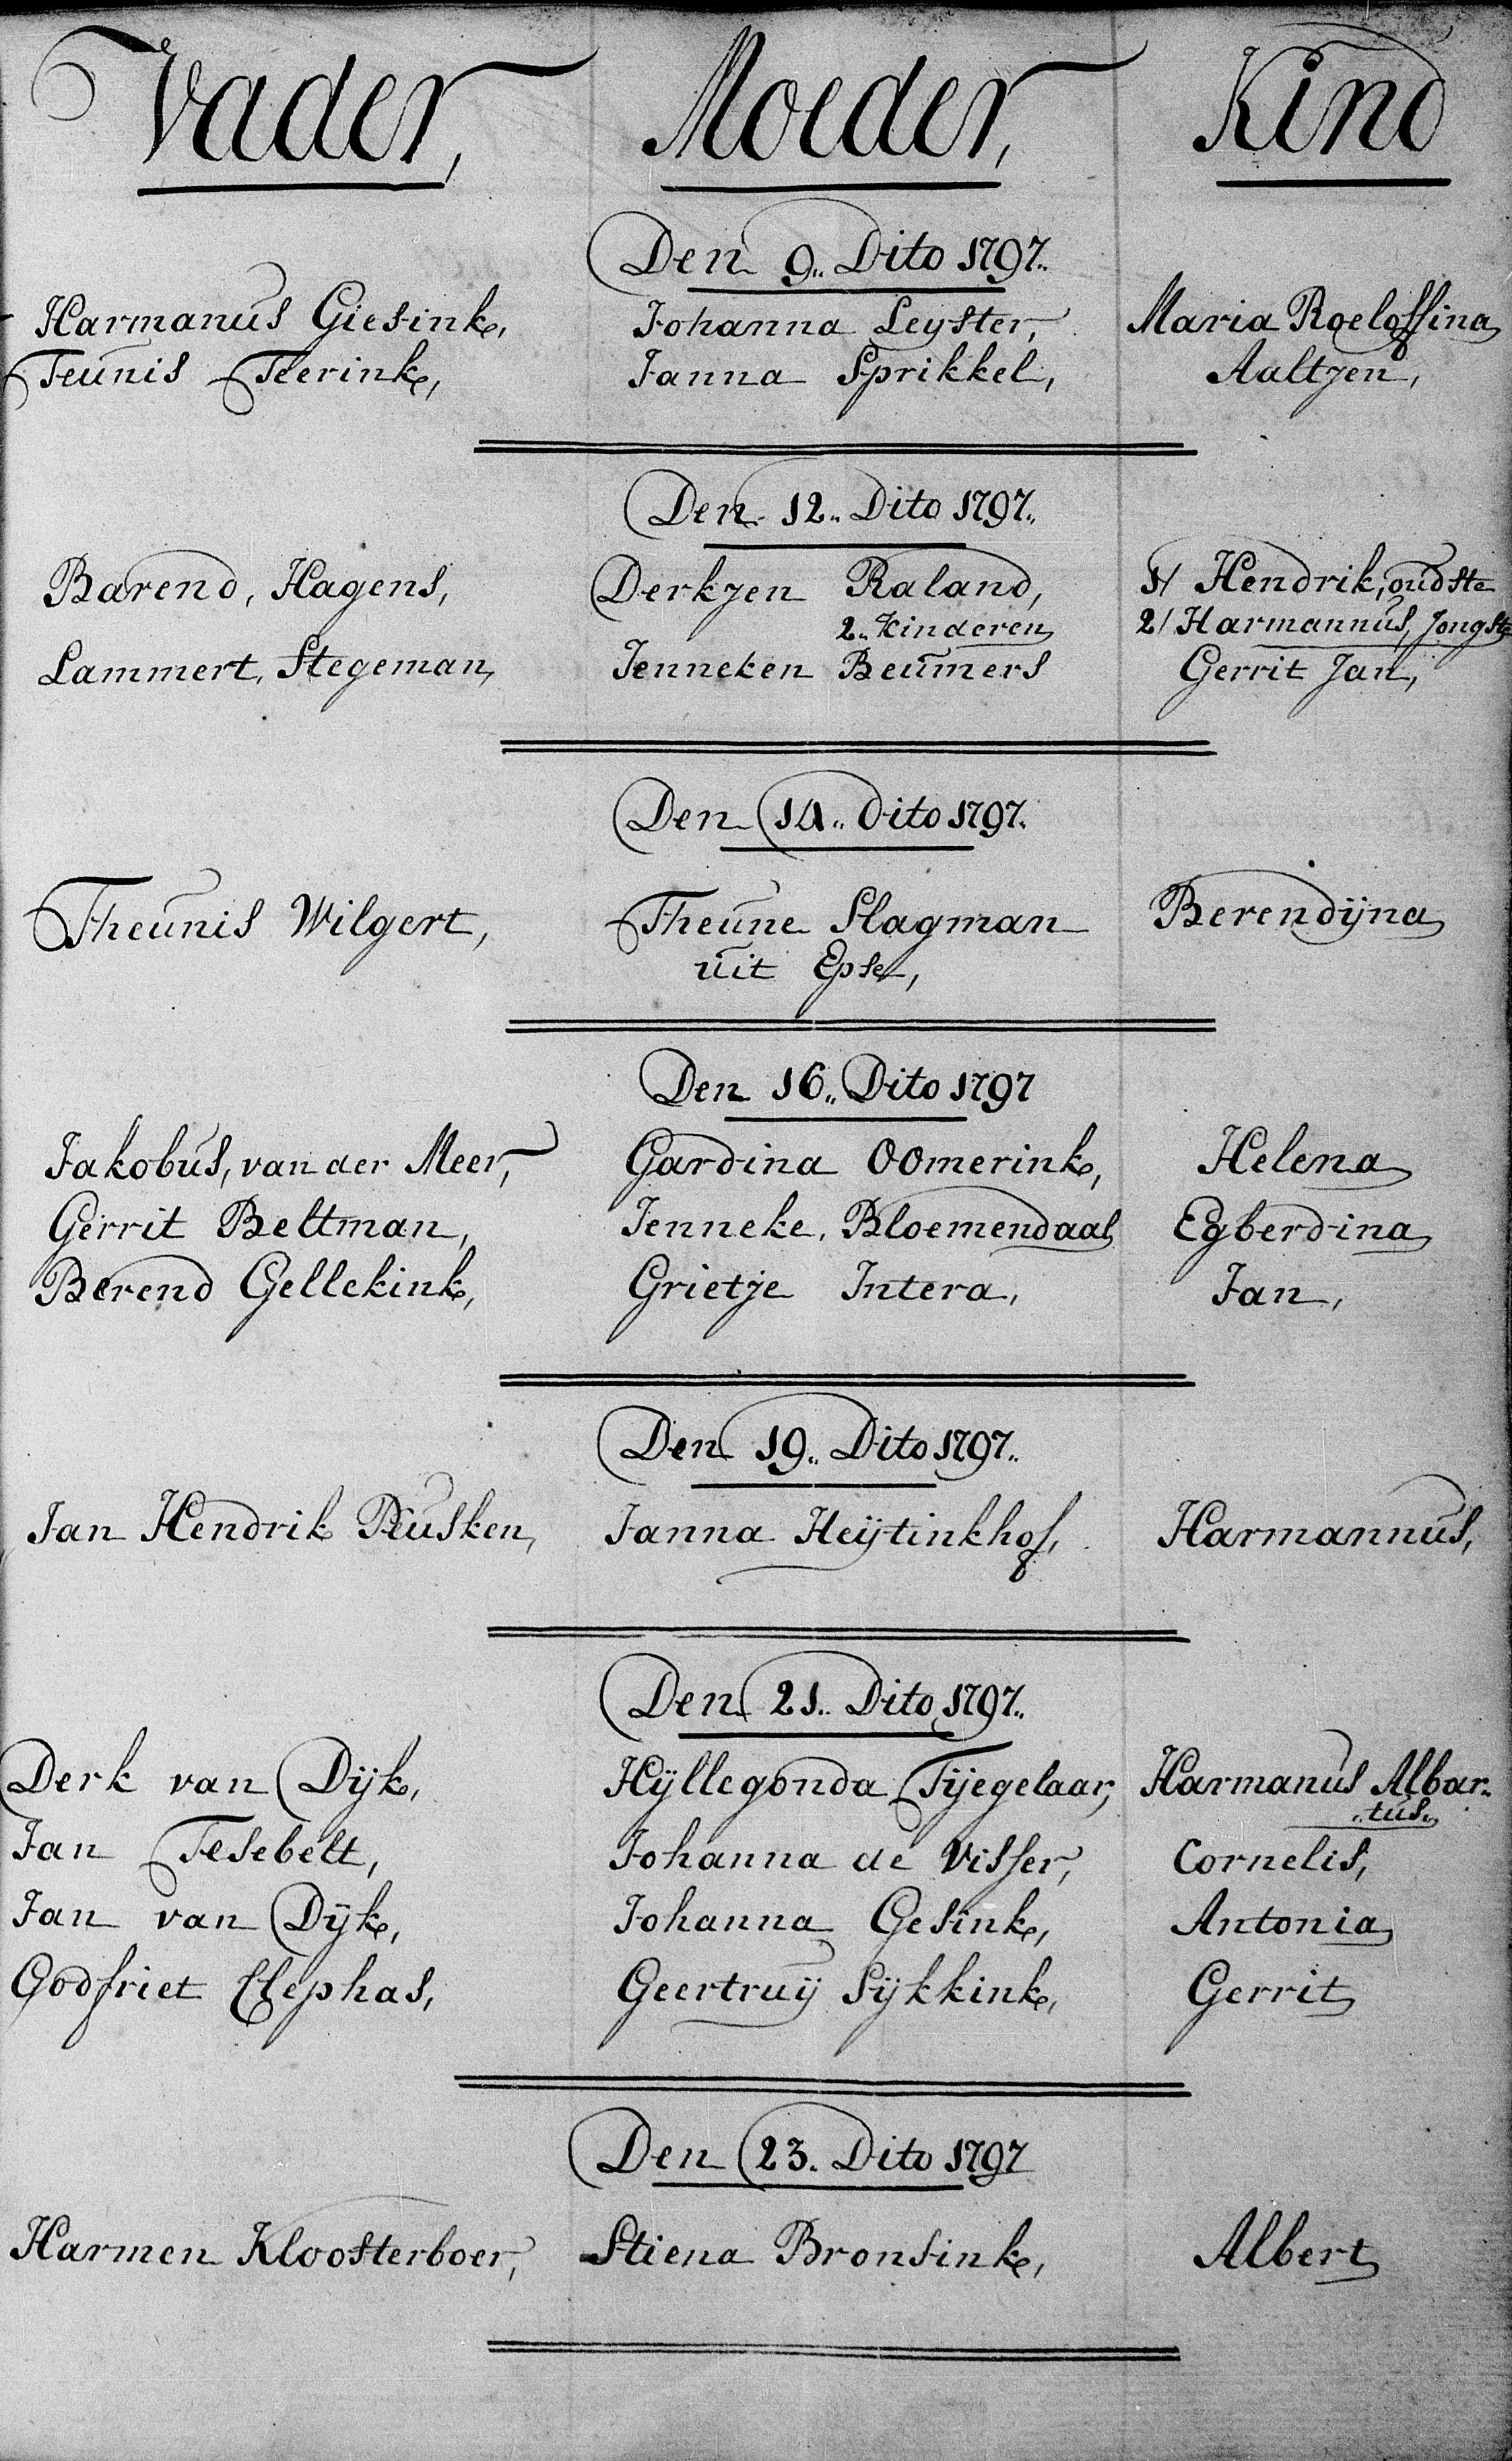 Vader, Moeder, Kind
Den 9.. Dito 1797..
Harmanus Giesink, Johanna Leyster, Maria Roeloffina
Teunis Teerink, Janna Sprikkel, Aaltjen,
Den 12.. Dito 1797..
Barend, Hagens, Derkjen Raland, 1/ Hendrik, oudste
2.. Kinderen 2/ Harmannus, Jongste
Lammert, Stegeman, Jenneken Beumers Gerrit Jan,
Den 14.. Dito 1797.
Theunis Wilgert, Theune Slagman Berendijna
uit Epse,
Den 16.. Dito 1797
Jakobus, van der Meer, Gardina Oomerink, Helena
Gerrit Beltman, Jenneke, Bloemendaal Egberdina
Berend Gellekink, Grietje Intera, Jan,
Den 19.. Dito 1797..
Jan Hendrik Rusken, Janna Heijtinkhof, Harmannus,
Den 21.. Dito 1797..
Derk van Dijk, Hijllegonda Tijegelaar, Harmanus Albar..
..tus..
Jan Tesebelt, Johanna de Visser, Cornelis,
Jan van Dijk, Johanna Gesink, Antonia
Godfriet Elephas, Geertruij Sijkkink, Gerrit
Den 23. Dito 1797
Harmen Kloosterboer, Stiena Bronsink, Albert